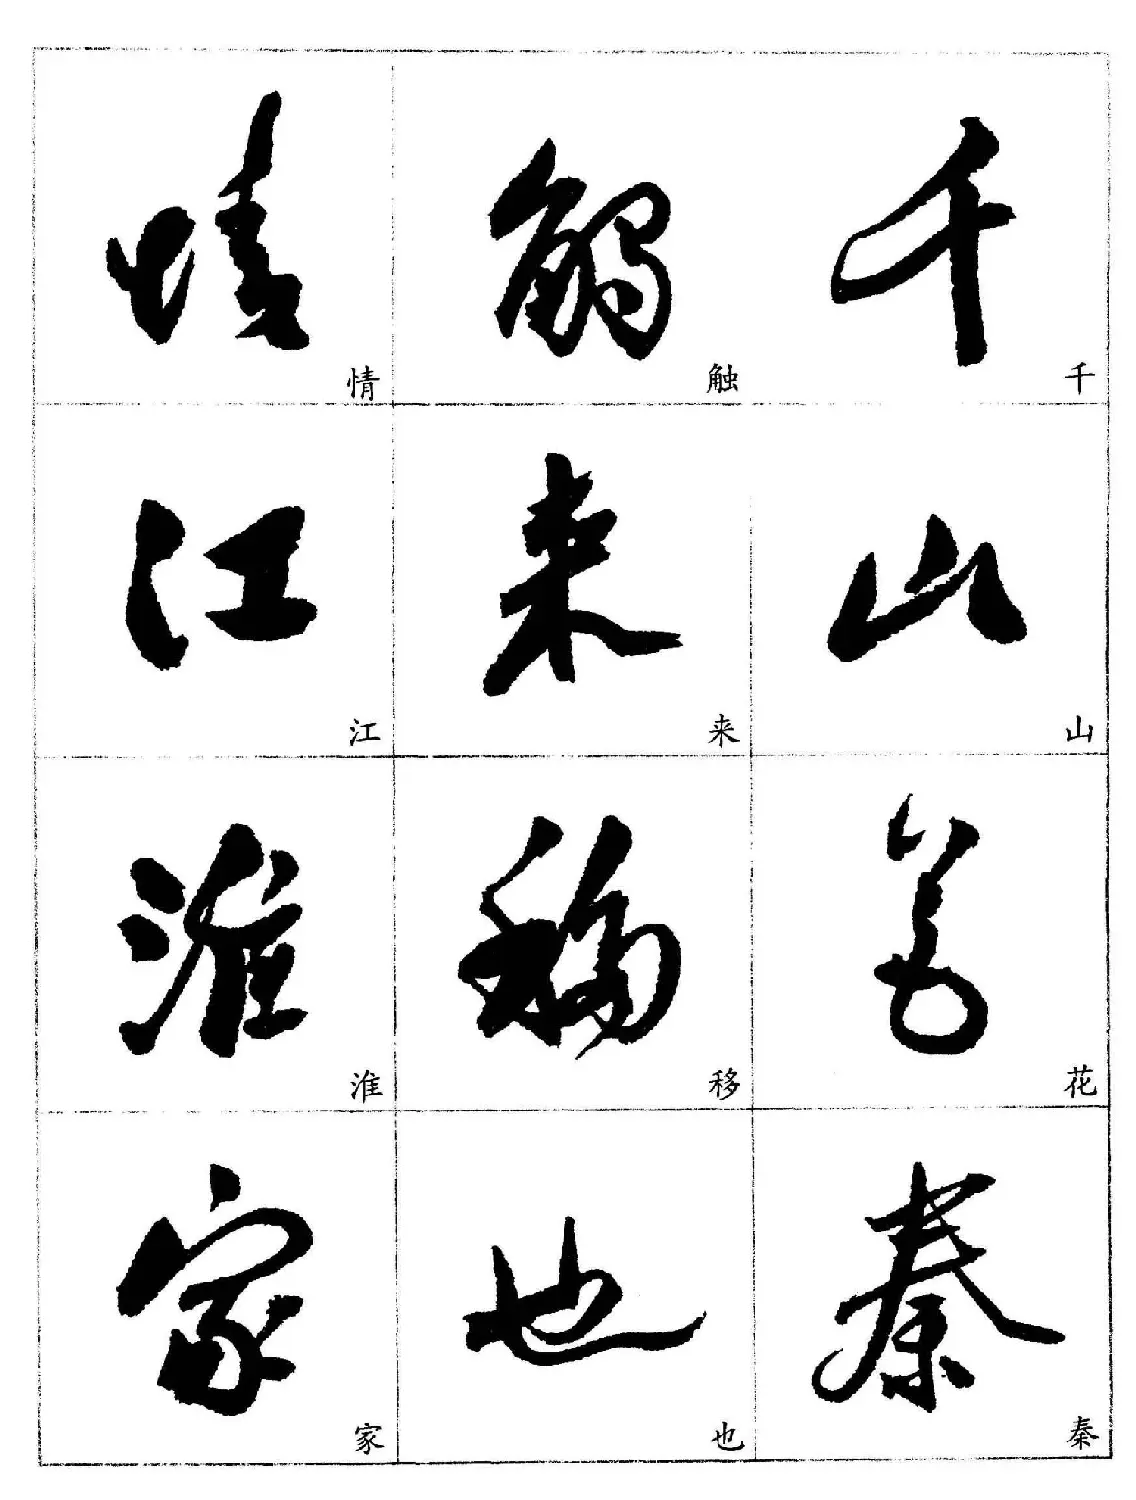 千山花秦
触来移也
情江淮家